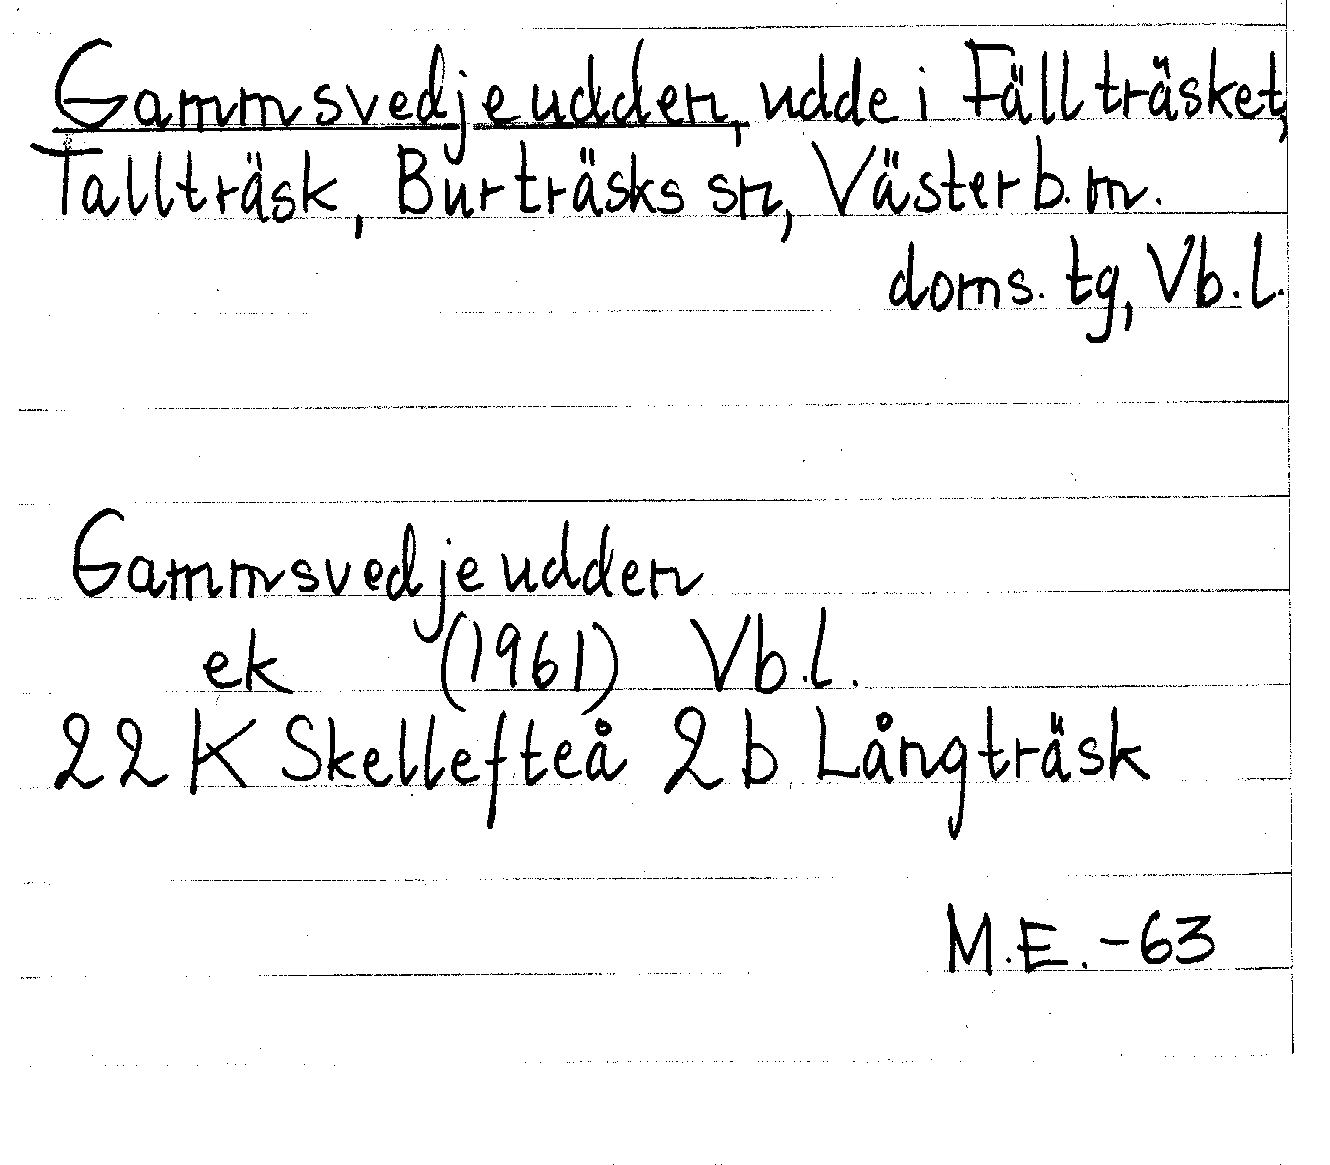 Gammsvedjeudden, udde i Fällträsket,
Tallträsk, Burträsks sn, Västerb. m.
doms. tg, Vb. l.
Gammsvedjeudden
ek (1961) Vb. l.
22 K Skellefteå 2 b Långträsk
M.E. -63